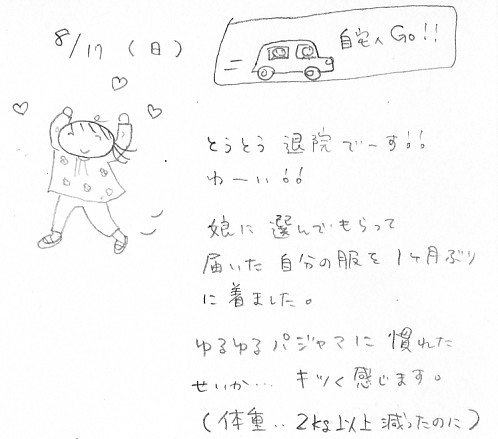 8/17 (日)
自宅へGo!!
とうとう 退院でーす!!
わーい!!
娘に 選んでもらって
届いた 自分の服を 1ヶ月ぶり
に着ました。
ゆるゆるパジャマに 慣れた
せいか… キツく 感じます。
(体重‥2kg以上減ったのに)